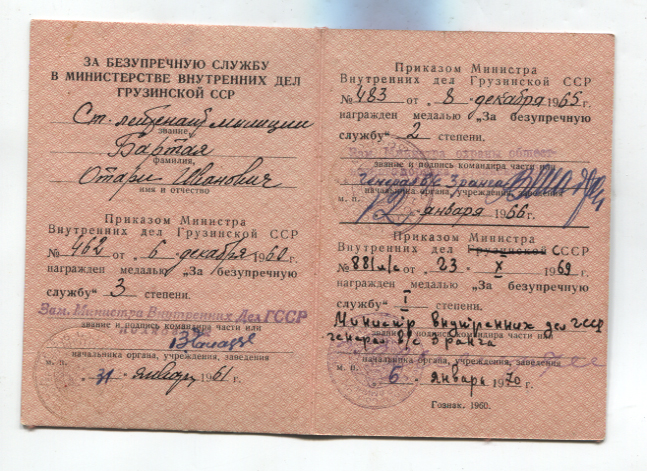 ЗА БЕЗУПРЕЧНУЮ СЛУЖБУ
В МИНИСТЕРСТВЕ ВНУТРЕННИХ ДЕЛ
ГРУЗИНСКОЙ ССР
Ст. лейтенант милиции
звание,
Бартая
фамилия,
Отари Иванович
имя и отчество
Приказом Министра
Внутренних дел Грузинской ССР
№ 462 от „6 декабря 1960 г.
награжден медалью „За безупречную
службу“ 3 степени.
Зам. Министра Внутренних Дел ГССР
звание и подпись командира части или
начальника органа, учреждения, заведения
м. п.
„31 январь 1961 г.
Приказом Министра
Внутренних дел Грузинской ССР
№ 483 от „8 декабря 1965 г.
награжден медалью „За безупречную
службу“ 2 степени.
Зам. Министра охраны общест-
звание и подпись командира части или
Генерал в/с 3 ранга
начальника органа, учреждения, заведения
м. п.
„12 января 1966 г.
Приказом Министра
Внутренних дел Грузинской СССР
№ 881 л/с от „23 X 1969 г.
награжден медалью „За безупречную
службу“ I степени.
Министр внутренних дел ГССР
звание и подпись командира части или
генерал в/с 3 ранга
начальника органа, учреждения, заведения
м. п.
„6 январь 1970 г.
Гознак. 1960.